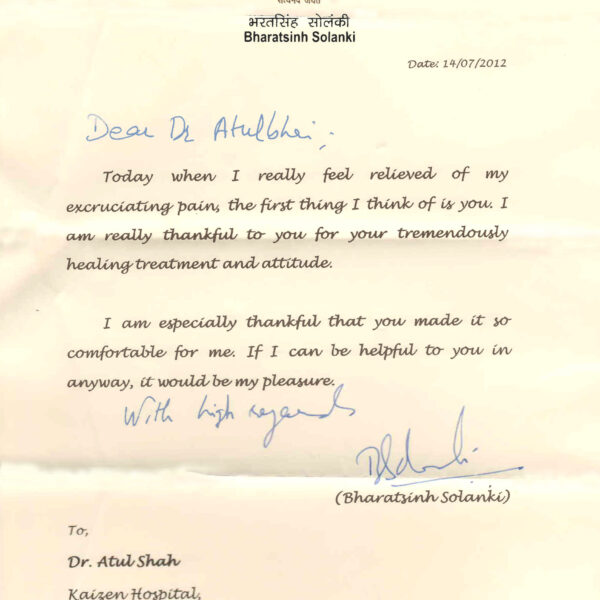 सत्यमेव जयते
भरतसिंह सोलंकी
Bharatsinh Solanki
Date: 14/07/2012
Dear Dr Atulbhai,
Today when I really feel relieved of my
excruciating pain, the first thing I think of is you. I
am really thankful to you for your tremendously
healing treatment and attitude.
I am especially thankful that you made it so
comfortable for me. If I can be helpful to you in
anyway, it would be my pleasure.
With high regards
(Bharatsinh Solanki)
To,
Dr. Atul Shah
Kaizen Hospital,